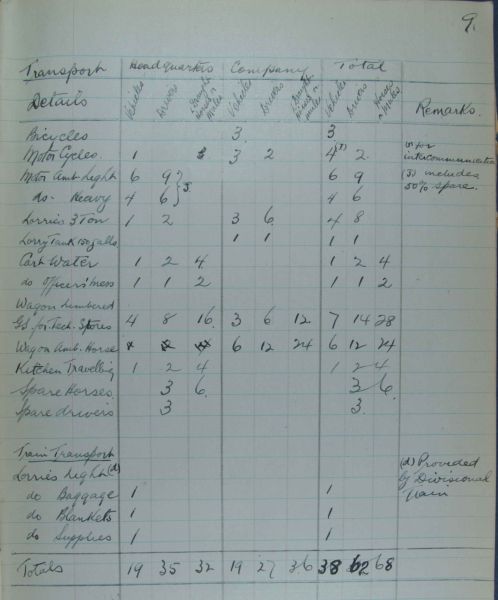 9.
Transport Headquarters Company Total
Details Vehicles Drivers Vehicles Drivers Vehicles Drivers Remarks.
Bicycles 3. 3
Motor Cycles. 1 3 2 4 2. for
intercommunication
Motor Amb. Light 6 9 6 9 (3) includes
do- Heavy 4 6 } 3. 4 6 50% spare.
Lorries 3 Ton 1 2 3 6 4 8
Lorry Tank 150 galls 1 1 1 1
Cart Water 1 2 4 1 2 4
do Officers' mess 1 1 2 1 1 2
Wagon Limbered
GS for Tech. Stores 4 8 16 3 6 12 7 14 28
Wagon Amb. Horse 6 12 24 6 12 24
Kitchen Travelling 1 2 4 1 2 4
Spare Horses. 3 6 3 6
Spare drivers 3 3.
Train Transport
Lorries Light (d) (d) Provided
do Baggage 1 1 by Divisional
do Blankets 1 1 Train
do Supplies 1 1
Totals 19 35 32 19 27 36 38 62 68